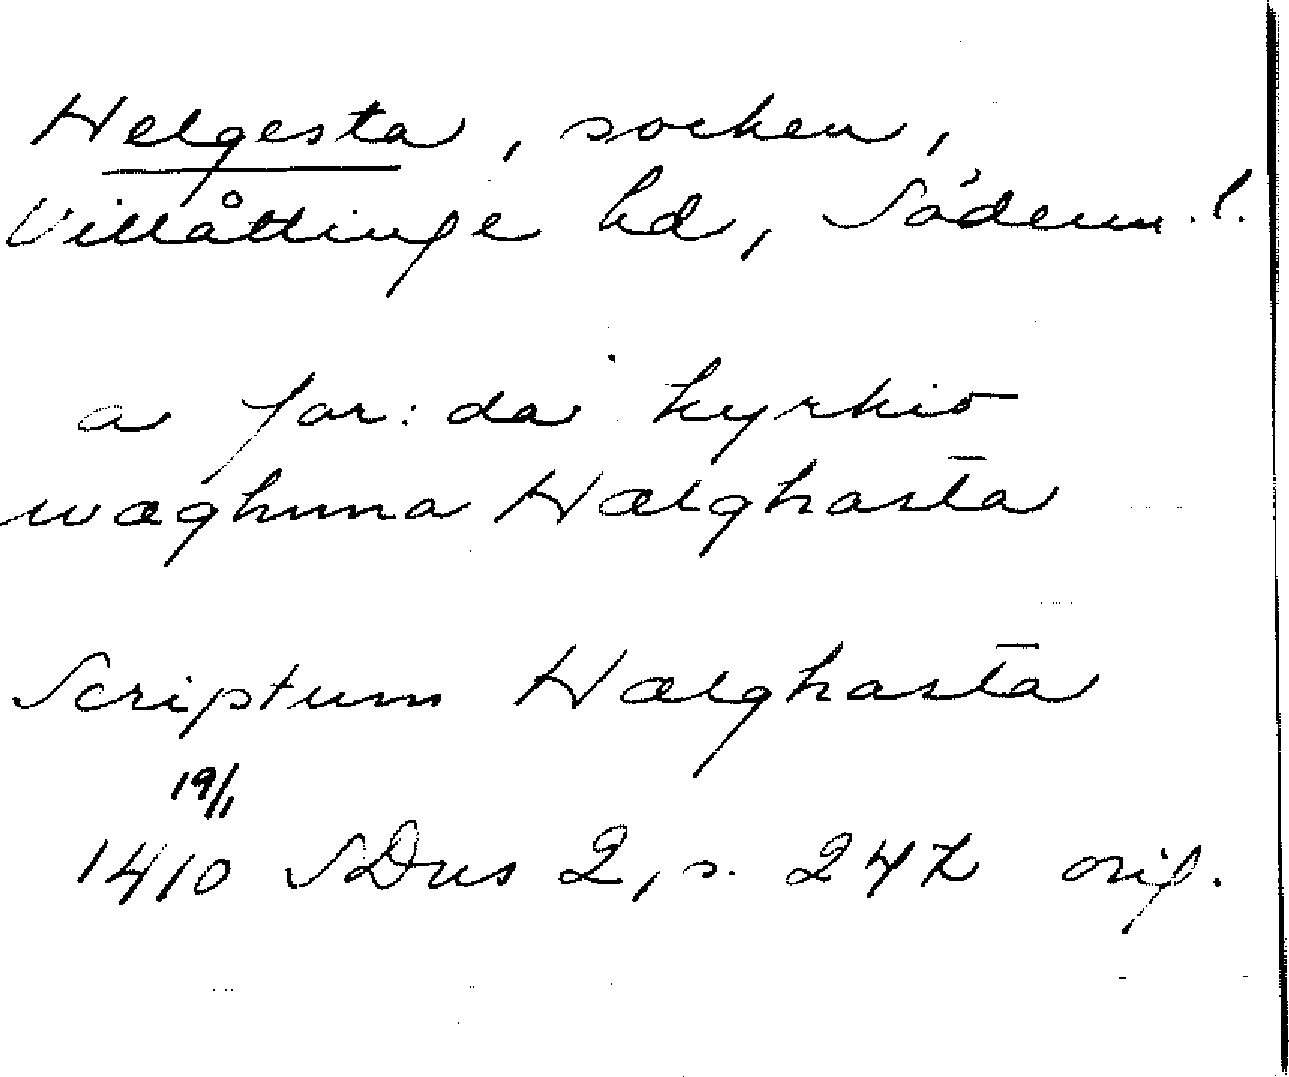 Helgesta, socken,
Villåttinge hd, Söderm. l.
a for:da kyrkio
wæghnna Hælghastā
Scriptum Hælghastā
19/1
1410 SDns 2, s. 247 orig.